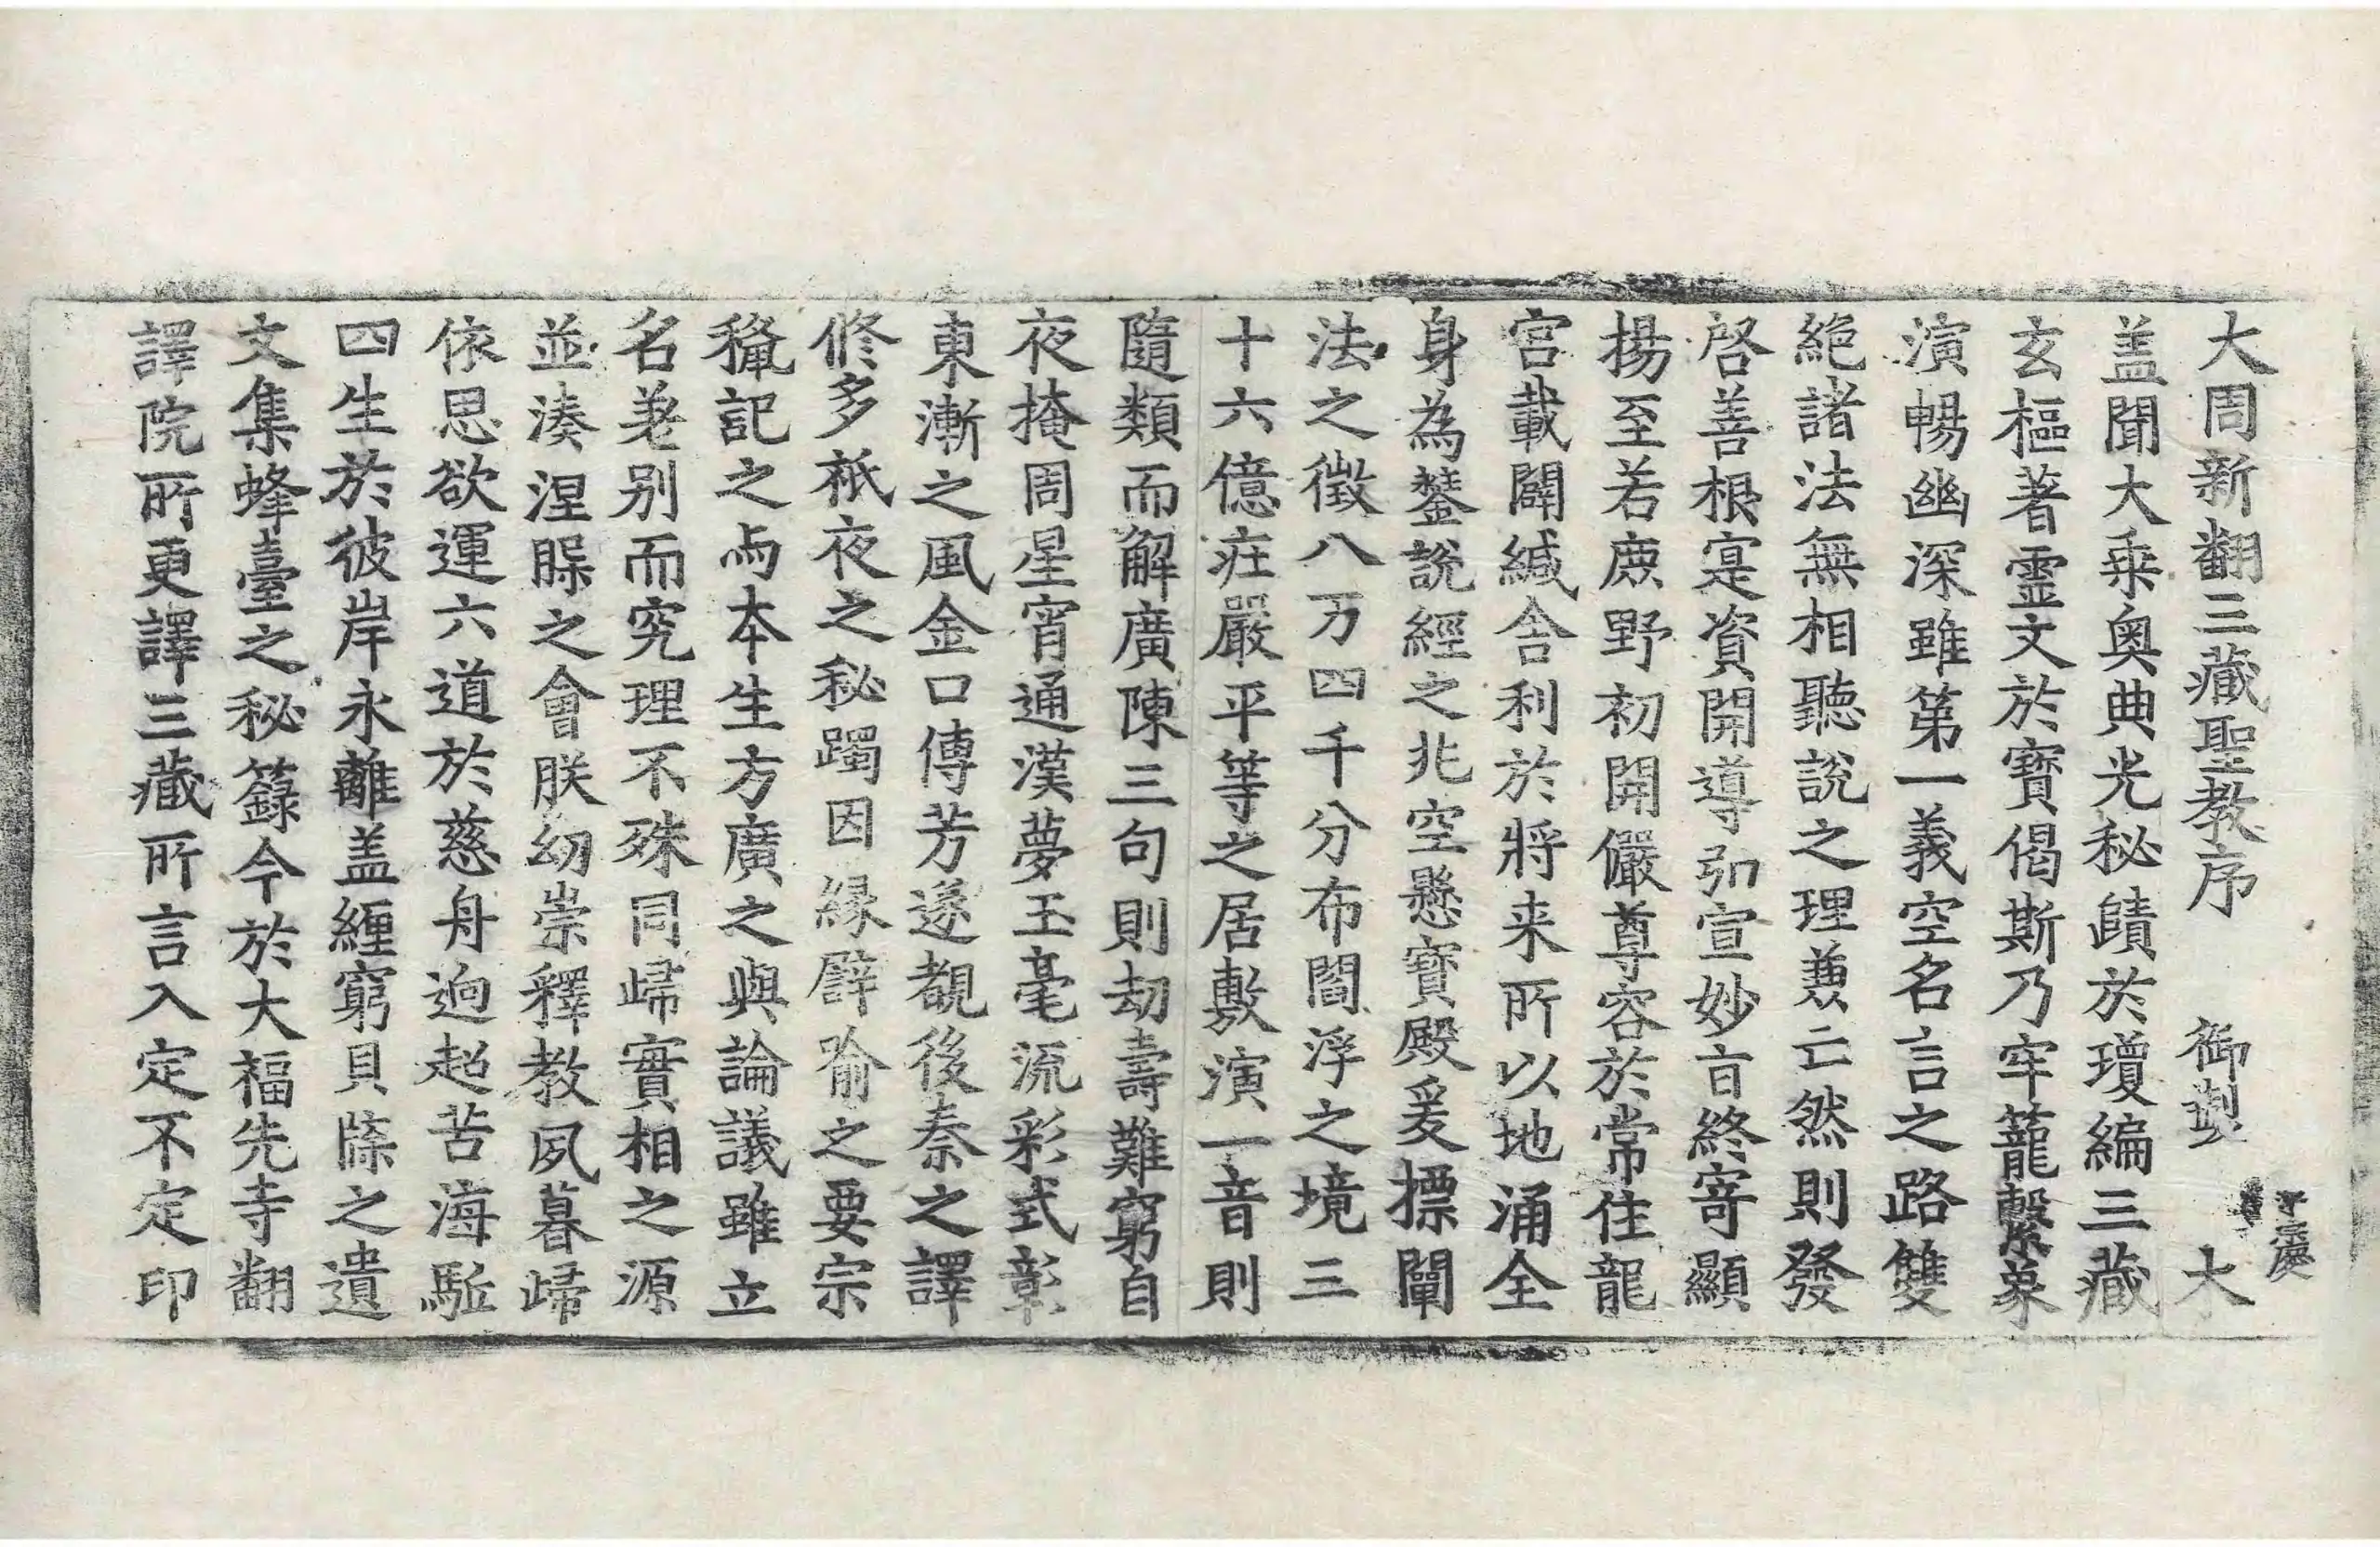 大周新翻三藏聖教序 御製 大
盖聞大乗奥典光秘賾於瓊編三藏
玄樞著霊文於寶偈斯乃牢籠繫象
演暢幽深雖第一義空名言之路雙
絶諸法無相聽說之理兼亡然則發
啓善根寔資開導弘宣妙旨終寄顯
揚至若鹿野初開儼尊容於常住龍
宮載闢緘舎利於將来所以地涌全
身為鏊說經之兆空懸寶殿爰摽闡
法之徵八万四千分布閻浮之境三
十六億荘嚴平等之居敷演一音則
隨類而解廣陳三句則劫壽難窮自
夜掩周星宵通漢夢玉毫流彩式彰
東漸之風金口傳芳遂覩後秦之譯
修多祇夜之秘躅因縁譬喻之要宗
記之与本生方廣之與論議雖立
名差别而究理不殊同歸實相之源
並湊涅之會朕幼崇釋教夙暮歸
依思欲運六道於慈舟逈超苦海駈
四生於彼岸永離盖纏窮貝牒之遺
文集蜂臺之秘籙今於大福先寺翻
譯院所更譯三藏所言入定不定印